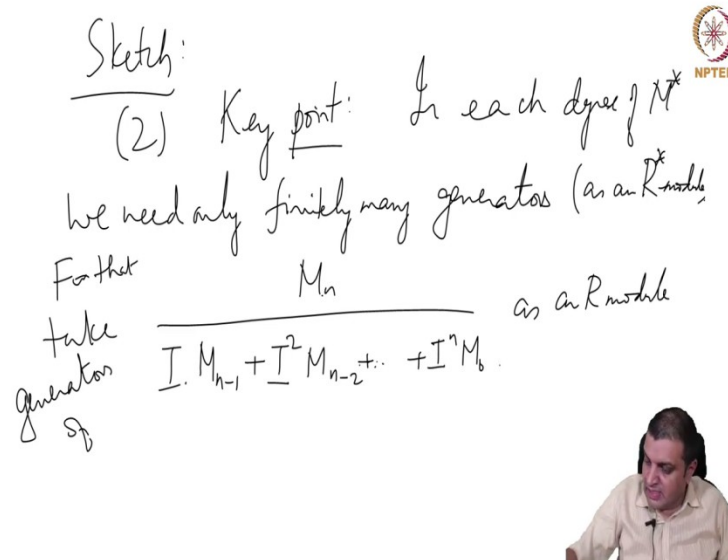 Sketch:
(2) Key point: In each degree of M*
We need only finitely many generators (as an R*-module,
For that take generators of
M_n
I. M_{n-1} + I^2 M_{n-2} + ... + I^n M_0.
as an R module
NPTEL